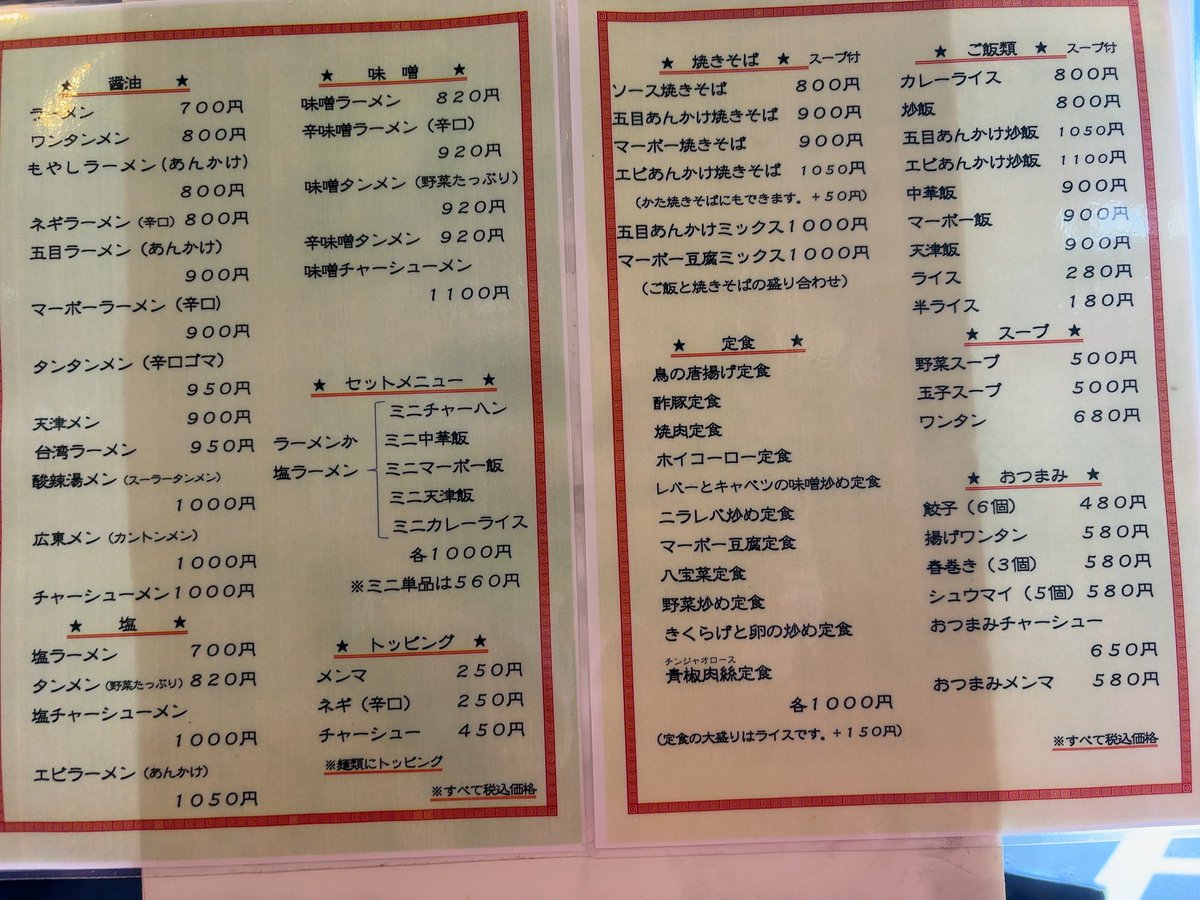 ★ 醤油 ★
ラーメン 700円
ワンタンメン 800円
もやしラーメン(あんかけ)
800円
ネギラーメン(辛口)800円
五目ラーメン(あんかけ)
900円
マーボーラーメン(辛口)
900円
タンタンメン(辛口ゴマ)
950円
天津メン 900円
台湾ラーメン 950円
酸辣湯メン(スーラータンメン)
1000円
広東メン(カントンメン)
1000円
チャーシューメン1000円
★ 塩 ★
塩ラーメン 700円
タンメン(野菜たっぷり)820円
塩チャーシューメン
1000円
エビラーメン(あんかけ)
1050円
★ 味噌 ★
味噌ラーメン 820円
辛味噌ラーメン(辛口)
920円
味噌タンメン(野菜たっぷり)
920円
辛味噌タンメン 920円
味噌チャーシューメン
1100円
★ セットメニュー ★
ラーメンか
塩ラーメン
ミニチャーハン
ミニ中華飯
ミニマーボー飯
ミニ天津飯
ミニカレーライス
各1000円
※ミニ単品は560円
★ トッピング ★
メンマ 250円
ネギ(辛口) 250円
チャーシュー 450円
※麺類にトッピング
※すべて税込価格
★ 焼きそば ★ スープ付
ソース焼きそば 800円
五目あんかけ焼きそば 900円
マーボー焼きそば 900円
エビあんかけ焼きそば 1050円
(かた焼きそばにもできます。+50円)
五目あんかけミックス1000円
マーボー豆腐ミックス1000円
(ご飯と焼きそばの盛り合わせ)
★ 定食 ★
鳥の唐揚げ定食
酢豚定食
焼肉定食
ホイコーロー定食
レバーとキャベツの味噌炒め定食
ニラレバ炒め定食
マーボー豆腐定食
八宝菜定食
野菜炒め定食
きくらげと卵の炒め定食
チンジャオロース
青椒肉絲定食
各1000円
(定食の大盛りはライスです。+150円)
★ ご飯類 ★ スープ付
カレーライス 800円
炒飯 800円
五目あんかけ炒飯 1050円
エビあんかけ炒飯 1100円
中華飯 900円
マーボー飯 900円
天津飯 900円
ライス 280円
半ライス 180円
★ スープ ★
野菜スープ 500円
玉子スープ 500円
ワンタン 680円
★ おつまみ ★
餃子(6個) 480円
揚げワンタン 580円
春巻き(3個) 580円
シュウマイ(5個)580円
おつまみチャーシュー
650円
おつまみメンマ 580円
※すべて税込価格